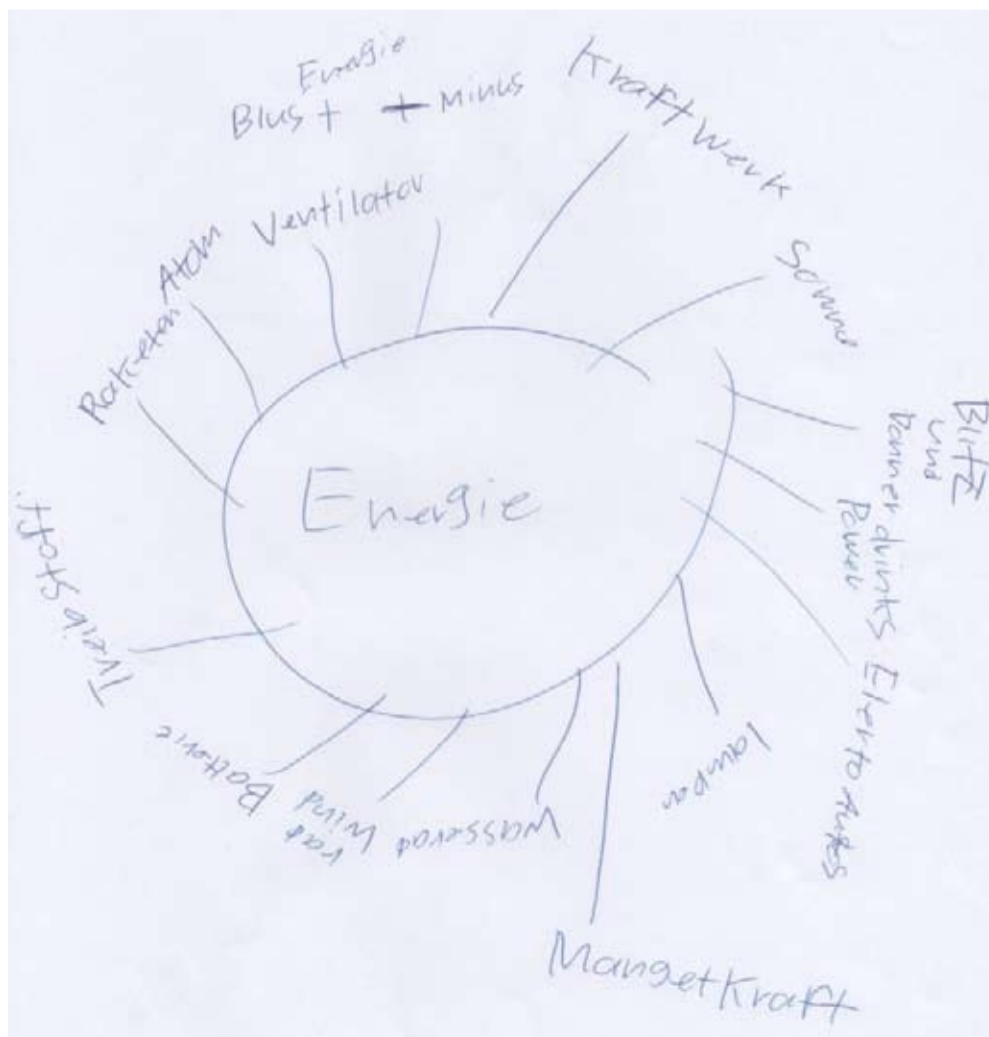 Energie
Blus + + Minus
Kraftwerk
Sound
Blitz
und
Donner
drinks
Power
Elerto Autos
lampen
MangetKraft
Wasserad
Wind
rad
Batterie
Treibstoff
Raketen
Atom
Ventilator
Energie